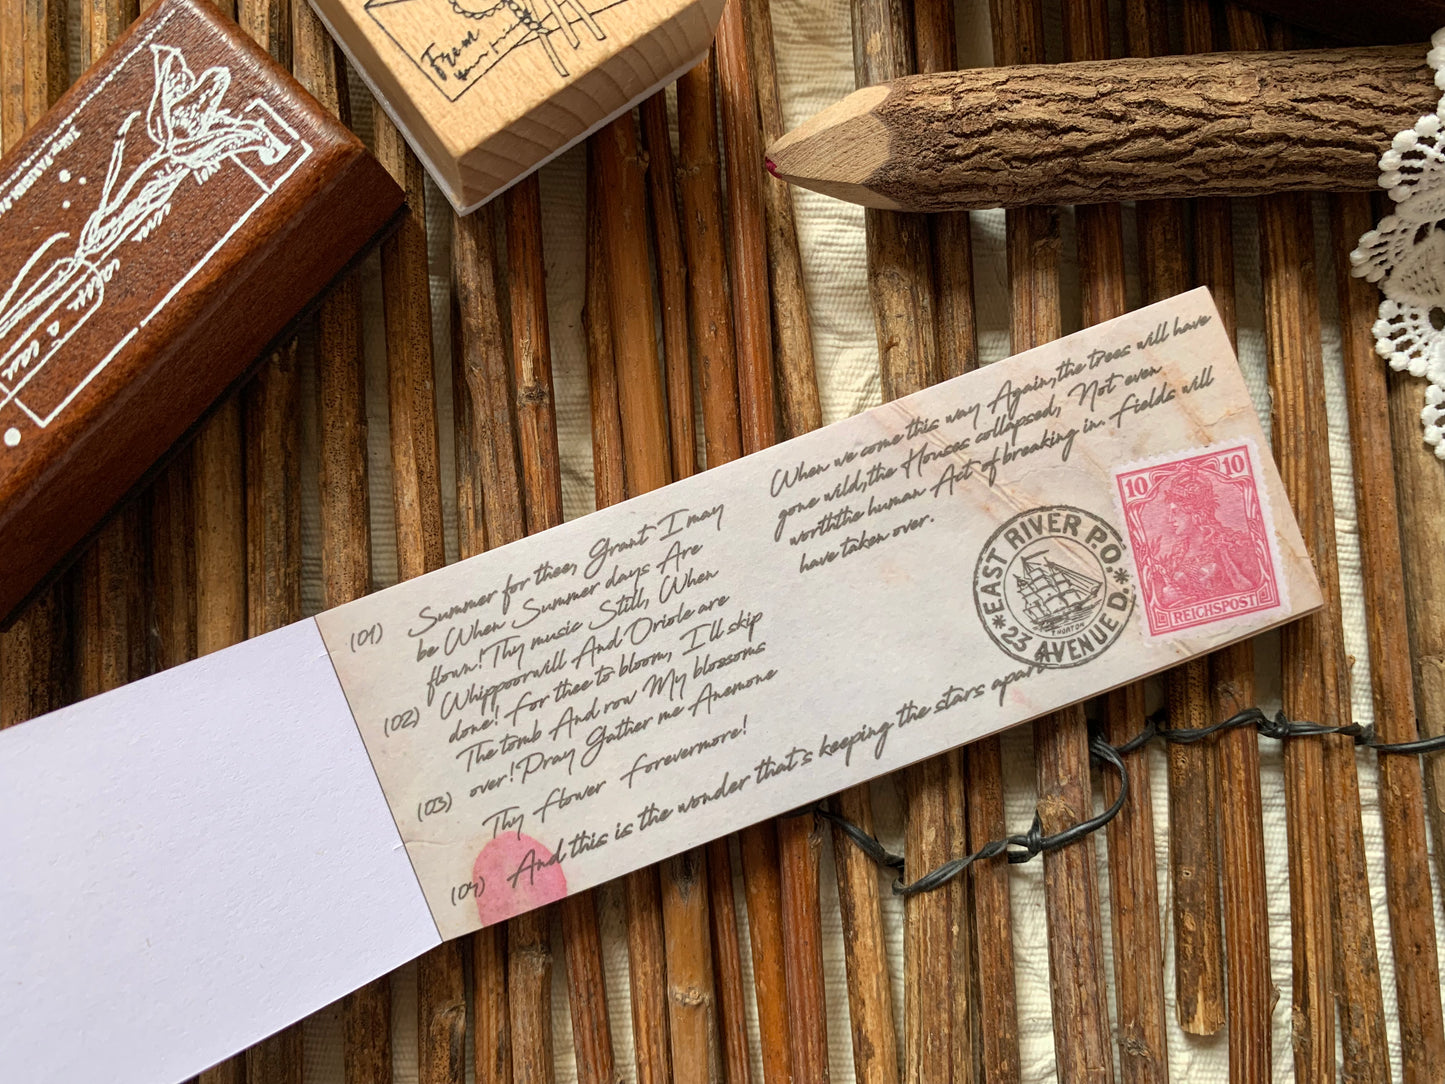 From
(01)
Summer for thee, Grant I may
be When Summer days Are
flown! Thy music Still, When
(02)
Whippoorwill And Oriole are
done! For thee to bloom, I'll skip
The tomb And row My blossoms
(03)
over! Pray Gather me Anemone
Thy flower Forevermore!
(04)
And this is the wonder that's keeping the stars apart
When we come this way Again,the trees will have
gone wild,the Houses collapsed, Not even
worththe human Act of breaking in. Fields will
have taken over.
EAST RIVER P.O.
*23 AVENUE D.*
10 10
REICHSPOST